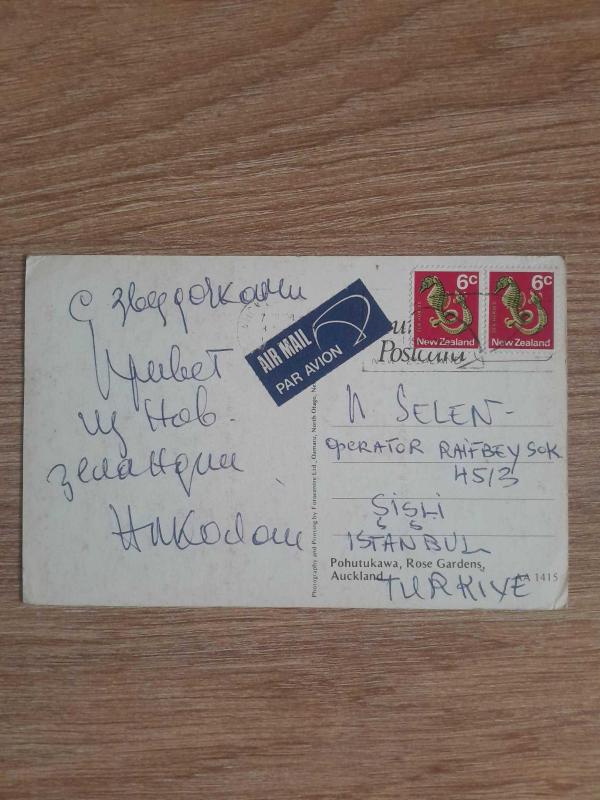 С звездочками
Привет
из Нов.
Зеландии
Николай
AIR MAIL
PAR AVION
6c
New Zealand
6c
New Zealand
Postcard
SELEN-
OPERATOR RAIFBEY SOK
45/3
ŞİŞLİ
ISTANBUL
TURKIYE
Pohutukawa, Rose Gardens,
Auckland
AA 1415
Photography and Printing by Futuramire Ltd., Oamaru, North Otago,